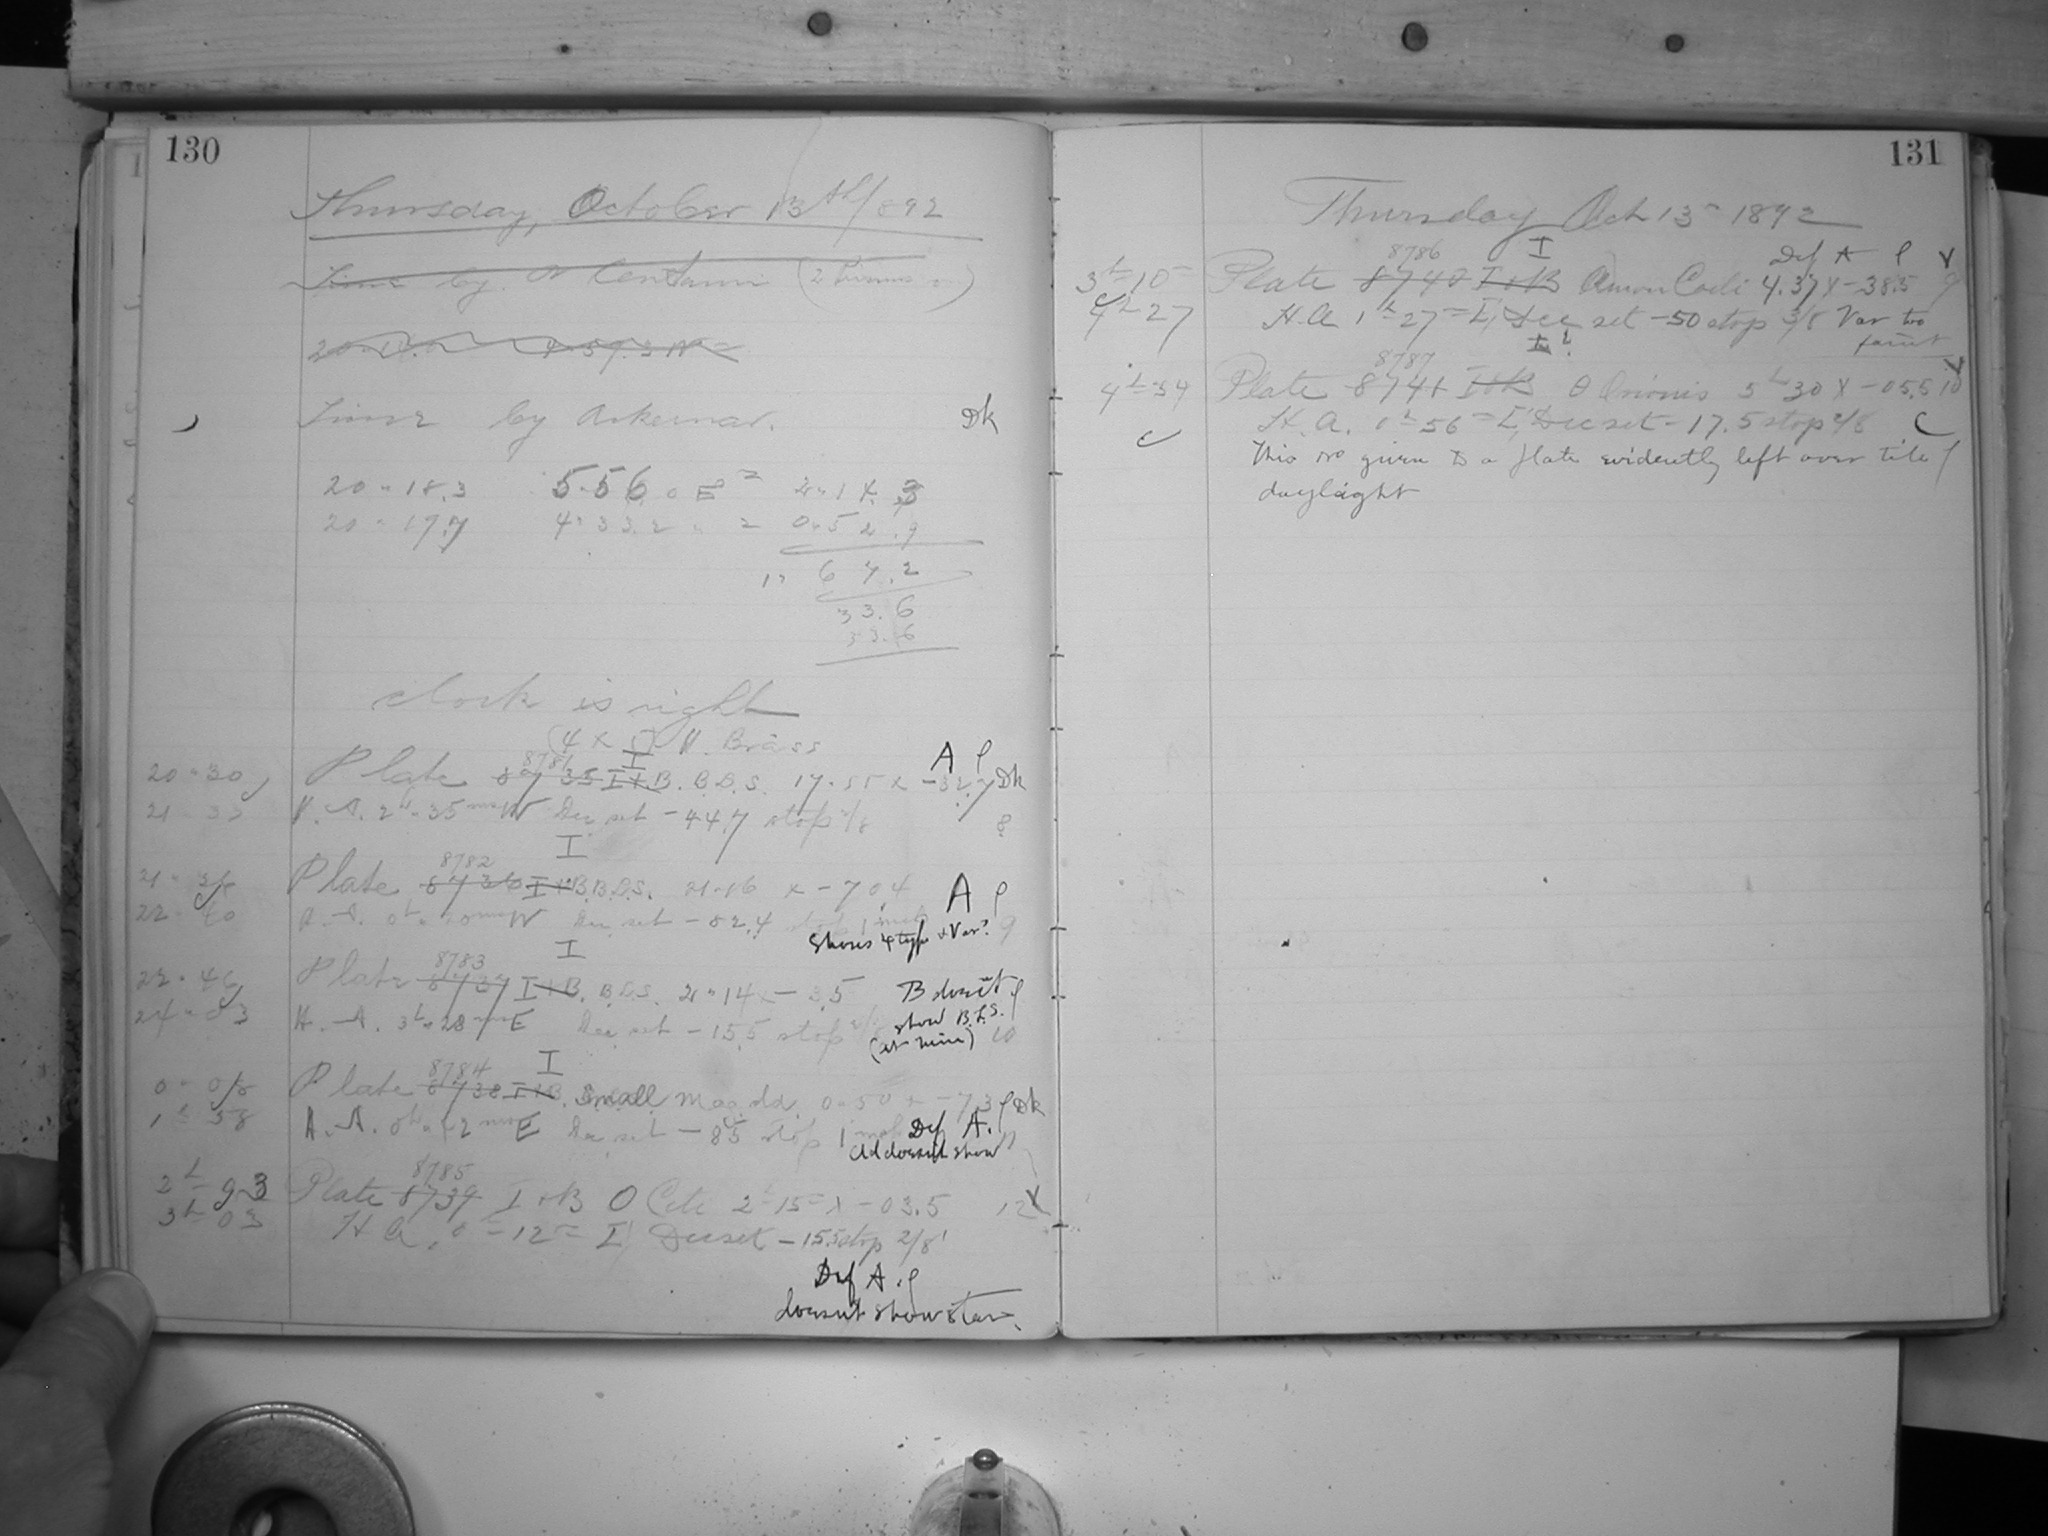 130
Thursday, October 13th/892
Time by α Centauri (2 turns
20 - 1
Time by Ackernar. Dk
20 - 18.3 5-56.0 E = 2-14.3
20 - 19.7 4-33.2 " = 0-52.9
1- 67.2
33.6
33.6
clock is right
(4 x 5) N. Brass
I
8781 A P
20-30 Plate 8735 I+B. B.D.S. 17-55 x -32.7 Dk
21-35 H.A. 2h-35m W Dec set -44.7 stop 2/8 8
I
8782
21 - Plate 8736 I+B. B.D.S. 21-16 x -70.4 A P
22-40 H.A. 0h-20m W Dec set -82.4 stop 1 inch 9
Shows 4 type + Var?
I
8783
22-46 Plate 8737 I+B. B.D.S. 21-14 x -3.5 B doesn't P
24-03 H.A. 3h-28m E Dec set -15.5 stop show B.L.S.
(at mine) 10
I
8784
0- Plate 8738 I+B. Small Mag. 0-50 x -73 P Dk
1-58 H.A. 0h-42m E Dec set -85 stop 1 inch Def A.
Ad doesn't show 11
8785
2h Plate 8739 I+B O Ceti 2h 15m x -03.5 12 V
3h 03 H A. 0h 12m E, Dec set -15.5 stop 2/8
Def A. P
doesn't show star.
131
Thursday Oct 13th 1892
8786 I Def A P V
3h 10m Plate 8740 I+B Amon Coeli 4.37 x -38.5 9
4h 27 H.A 1h 27m E, Dec set -50 stop 2/8 Var too
faint
8787 I? V
4h 34 Plate 8741 I+B θ Orionis 5h 30 x -05.5 10
H.A. 0h 56m E, Dec set -17.5 stop 2/8 C
This no given to a plate evidently left over till
daylight